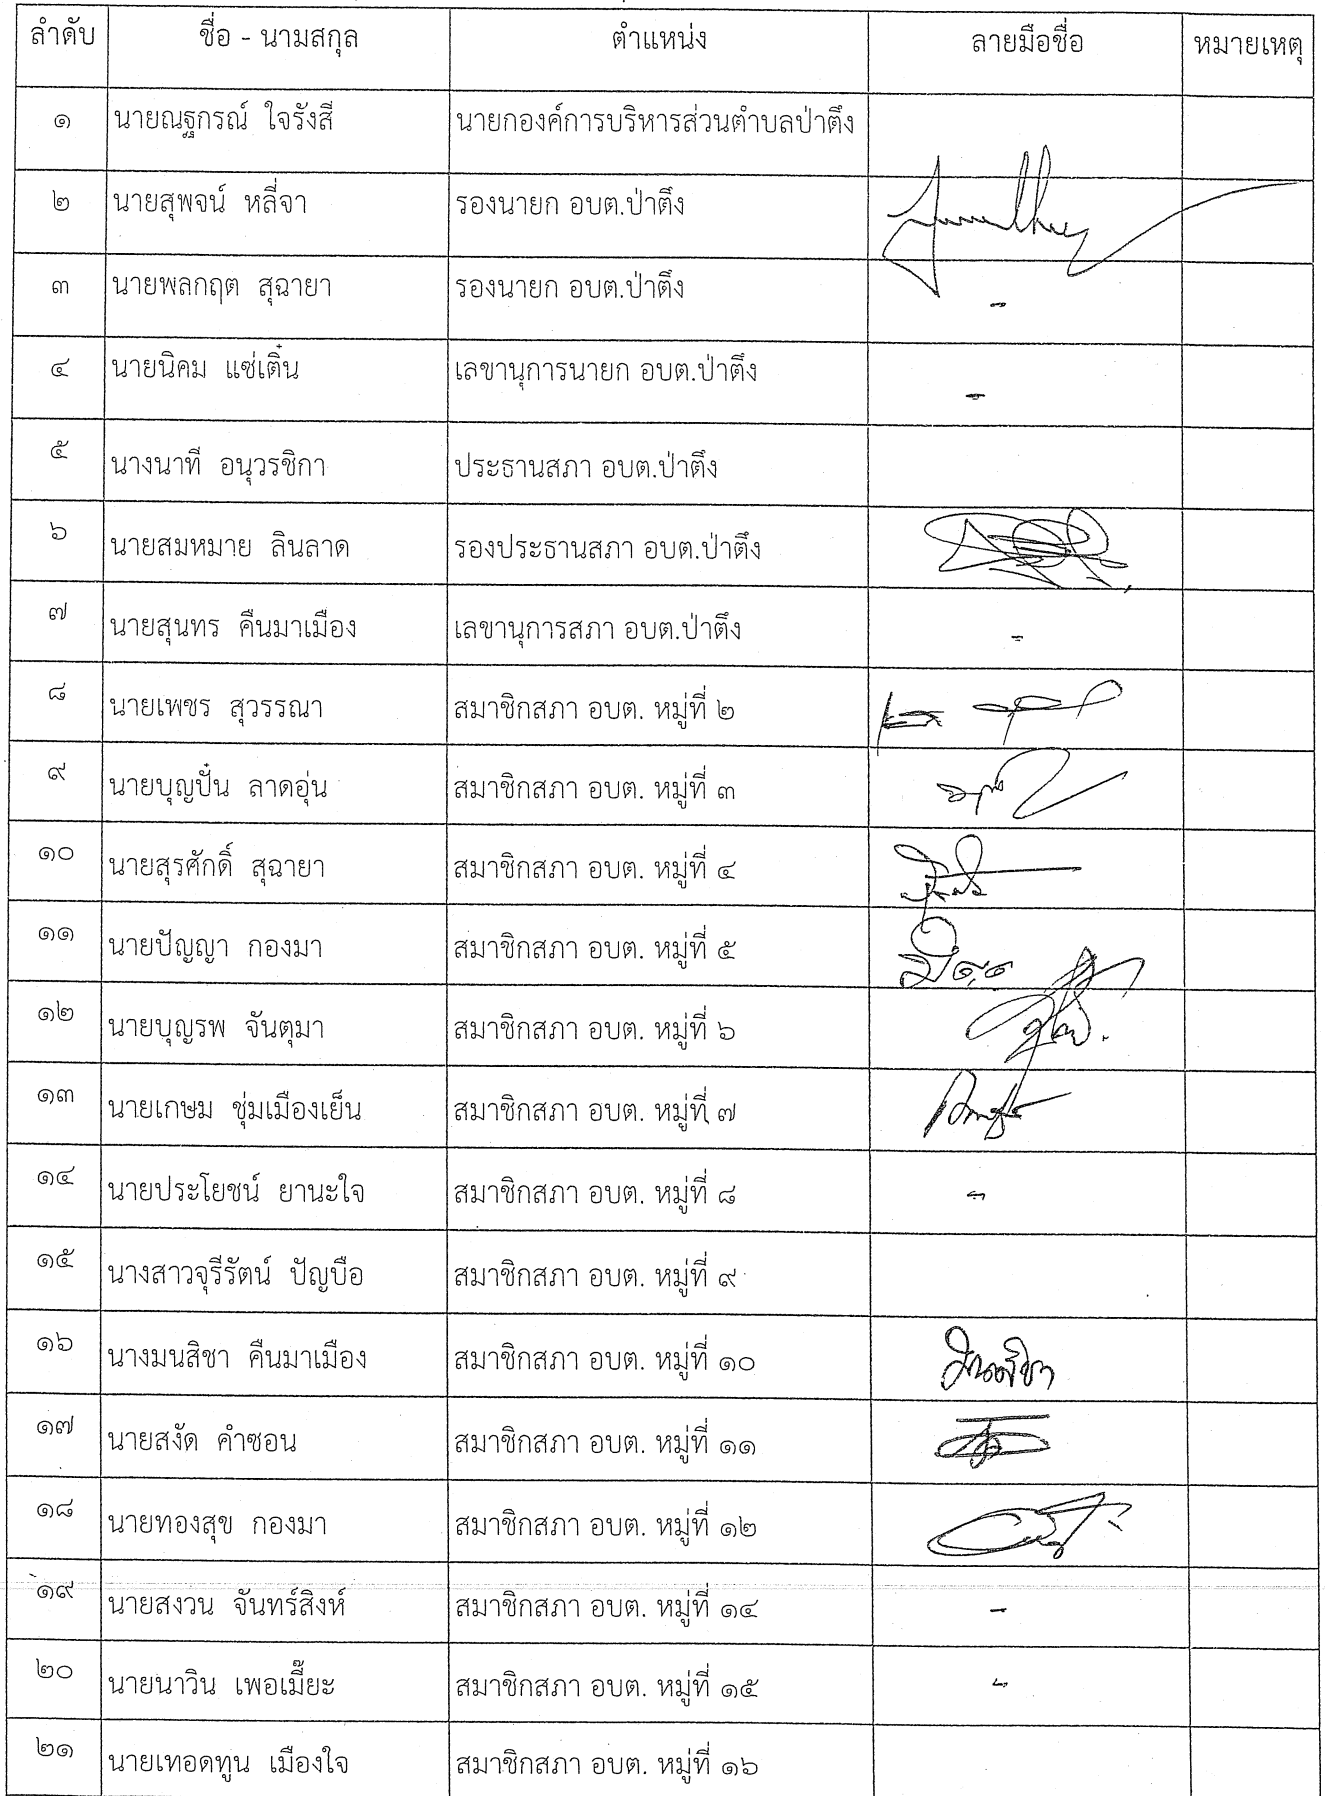 ลำดับ ชื่อ - นามสกุล ตำแหน่ง ลายมือชื่อ หมายเหตุ
๑ นายณฐกรณ์ ใจรังสี นายกองค์การบริหารส่วนตำบลป่าตึง
๒ นายสุพจน์ หลี่จา รองนายก อบต.ป่าตึง
๓ นายพลกฤต สุฉายา รองนายก อบต.ป่าตึง -
๔ นายนิคม แซ่เติ๋น เลขานุการนายก อบต.ป่าตึง -
๕ นางนาที อนุวรชิกา ประธานสภา อบต.ป่าตึง
๖ นายสมหมาย ลินลาด รองประธานสภา อบต.ป่าตึง
๗ นายสุนทร คืนมาเมือง เลขานุการสภา อบต.ป่าตึง -
๘ นายเพชร สุวรรณา สมาชิกสภา อบต. หมู่ที่ ๒
๙ นายบุญปั๋น ลาดอุ่น สมาชิกสภา อบต. หมู่ที่ ๓
๑๐ นายสุรศักดิ์ สุฉายา สมาชิกสภา อบต. หมู่ที่ ๔
๑๑ นายปัญญา กองมา สมาชิกสภา อบต. หมู่ที่ ๕
๑๒ นายบุญรพ จันตุมา สมาชิกสภา อบต. หมู่ที่ ๖
๑๓ นายเกษม ชุ่มเมืองเย็น สมาชิกสภา อบต. หมู่ที่ ๗
๑๔ นายประโยชน์ ยานะใจ สมาชิกสภา อบต. หมู่ที่ ๘ -
๑๕ นางสาวจุรีรัตน์ ปัญบือ สมาชิกสภา อบต. หมู่ที่ ๙
๑๖ นางมนสิชา คืนมาเมือง สมาชิกสภา อบต. หมู่ที่ ๑๐ มนสิชา
๑๗ นายสงัด คำซอน สมาชิกสภา อบต. หมู่ที่ ๑๑
๑๘ นายทองสุข กองมา สมาชิกสภา อบต. หมู่ที่ ๑๒
๑๙ นายสงวน จันทร์สิงห์ สมาชิกสภา อบต. หมู่ที่ ๑๔ -
๒๐ นายนาวิน เพอเมี๊ยะ สมาชิกสภา อบต. หมู่ที่ ๑๕ -
๒๑ นายเทอดทูน เมืองใจ สมาชิกสภา อบต. หมู่ที่ ๑๖